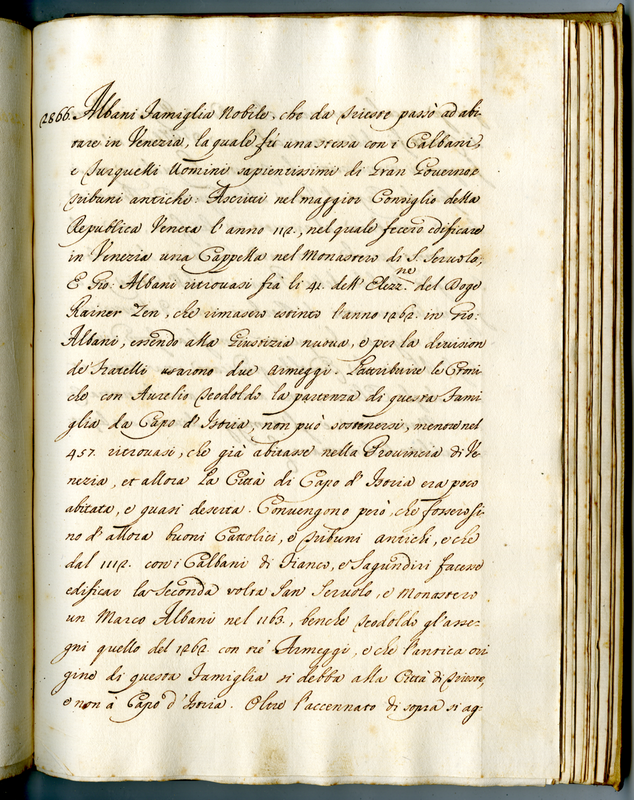 (2866. Albani Famiglia Nobile, che da Trieste passò ad abi:
tare in Venezia, la quale fù una stessa con i Calbani,
e furquelli Uomini sapientissimi di Gran Governo, e
tribuni antichi. Ascritti nel maggior Consiglio della
Republica Veneta l'anno 112., nel quale fecero edificare
in Venezia una Cappella nel Monastero di S. Servolo;
E Gio: Albani ritrovasi frà li 41. dell' Elezz.ne del Doge
Rainer Zen, che rimasero estinti l'anno 1262. in Gio:
Albani, essendo alla Giustizia nuova, e per la division
de' Fratelli usarono due Armeggi. L'attribuire le Croni
che con Aurelio Todoldo la partenza di questa Fami
glia da Capo d'Istria, non può sostenersi, mentre nel
457. ritrovasi, che già abitasse nella Provincia di Ve:
nezia, et allora la Città di Capo d'Istria era poco
abitata, e quasi deserta. Convengono però, che fossero fi
no d'allora buoni Cattolici, e tribuni antichi, e che
dal 1112. con i Calbani di Fianco, e Sagundiri facesse
edificar la seconda volta San Servolo, e Monastero
un Marco Albani nel 1163., benche Todoldo gl'asse:
gni quello del 1262. con trè Armeggi, e che l'antica ori
gine di questa Famiglia si debba alla Città di Trieste,
e non à Capo d'Istria. Oltre l'accennato di sopra si ag: